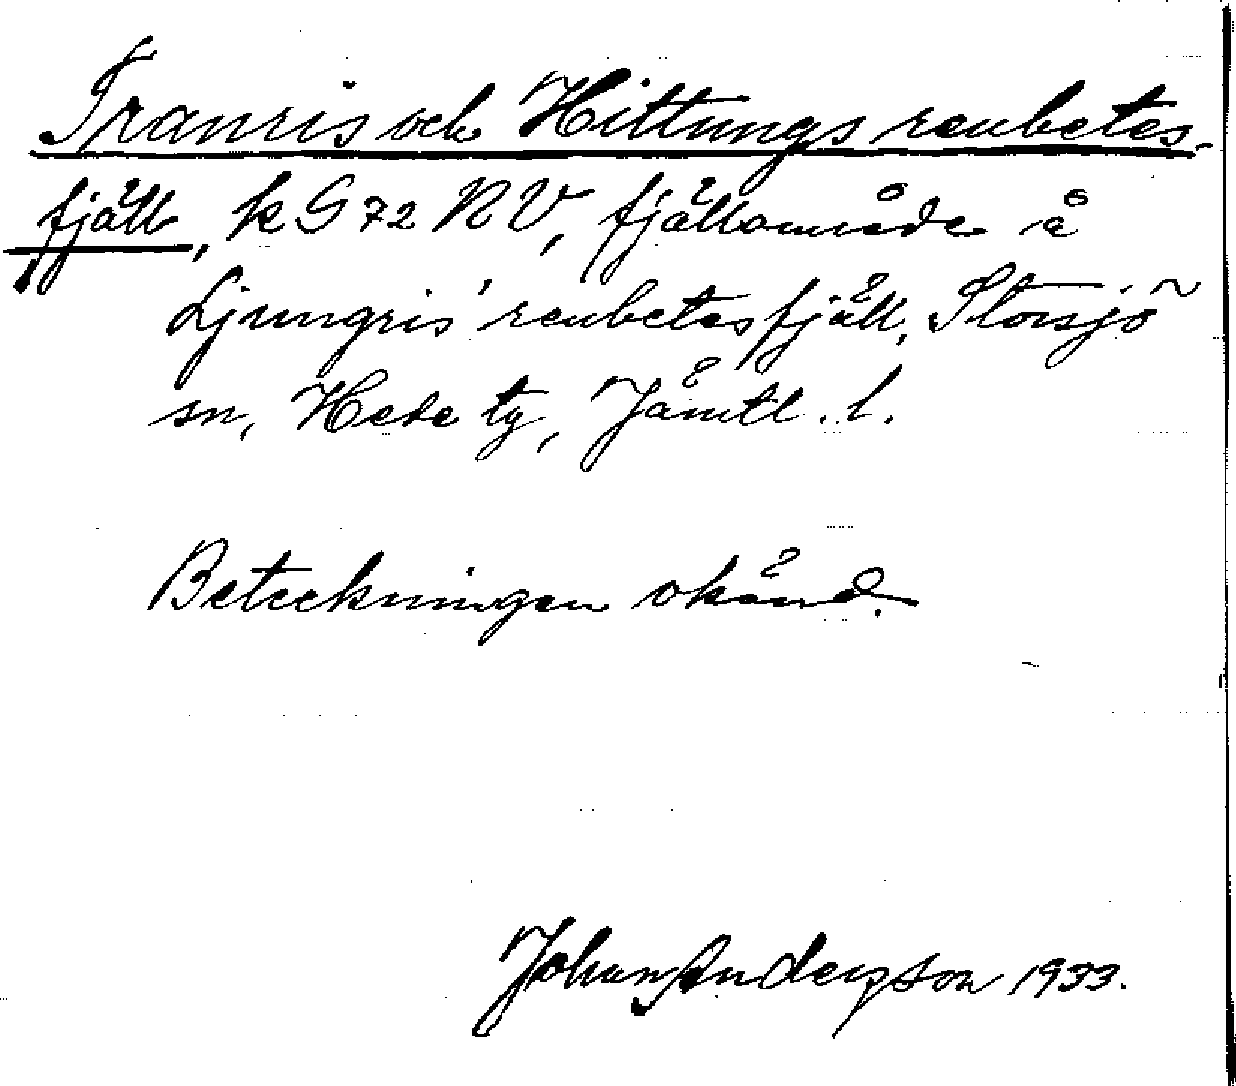 Tranris och Hittungs renbetes-
fjäll, k G 72 NV, fjällområde å
Ljungris' renbetesfjäll, Storsjö
sn, Hede tg, Jämtl. l.
Beteckningen okänd.
Johan Anderzson 1933.